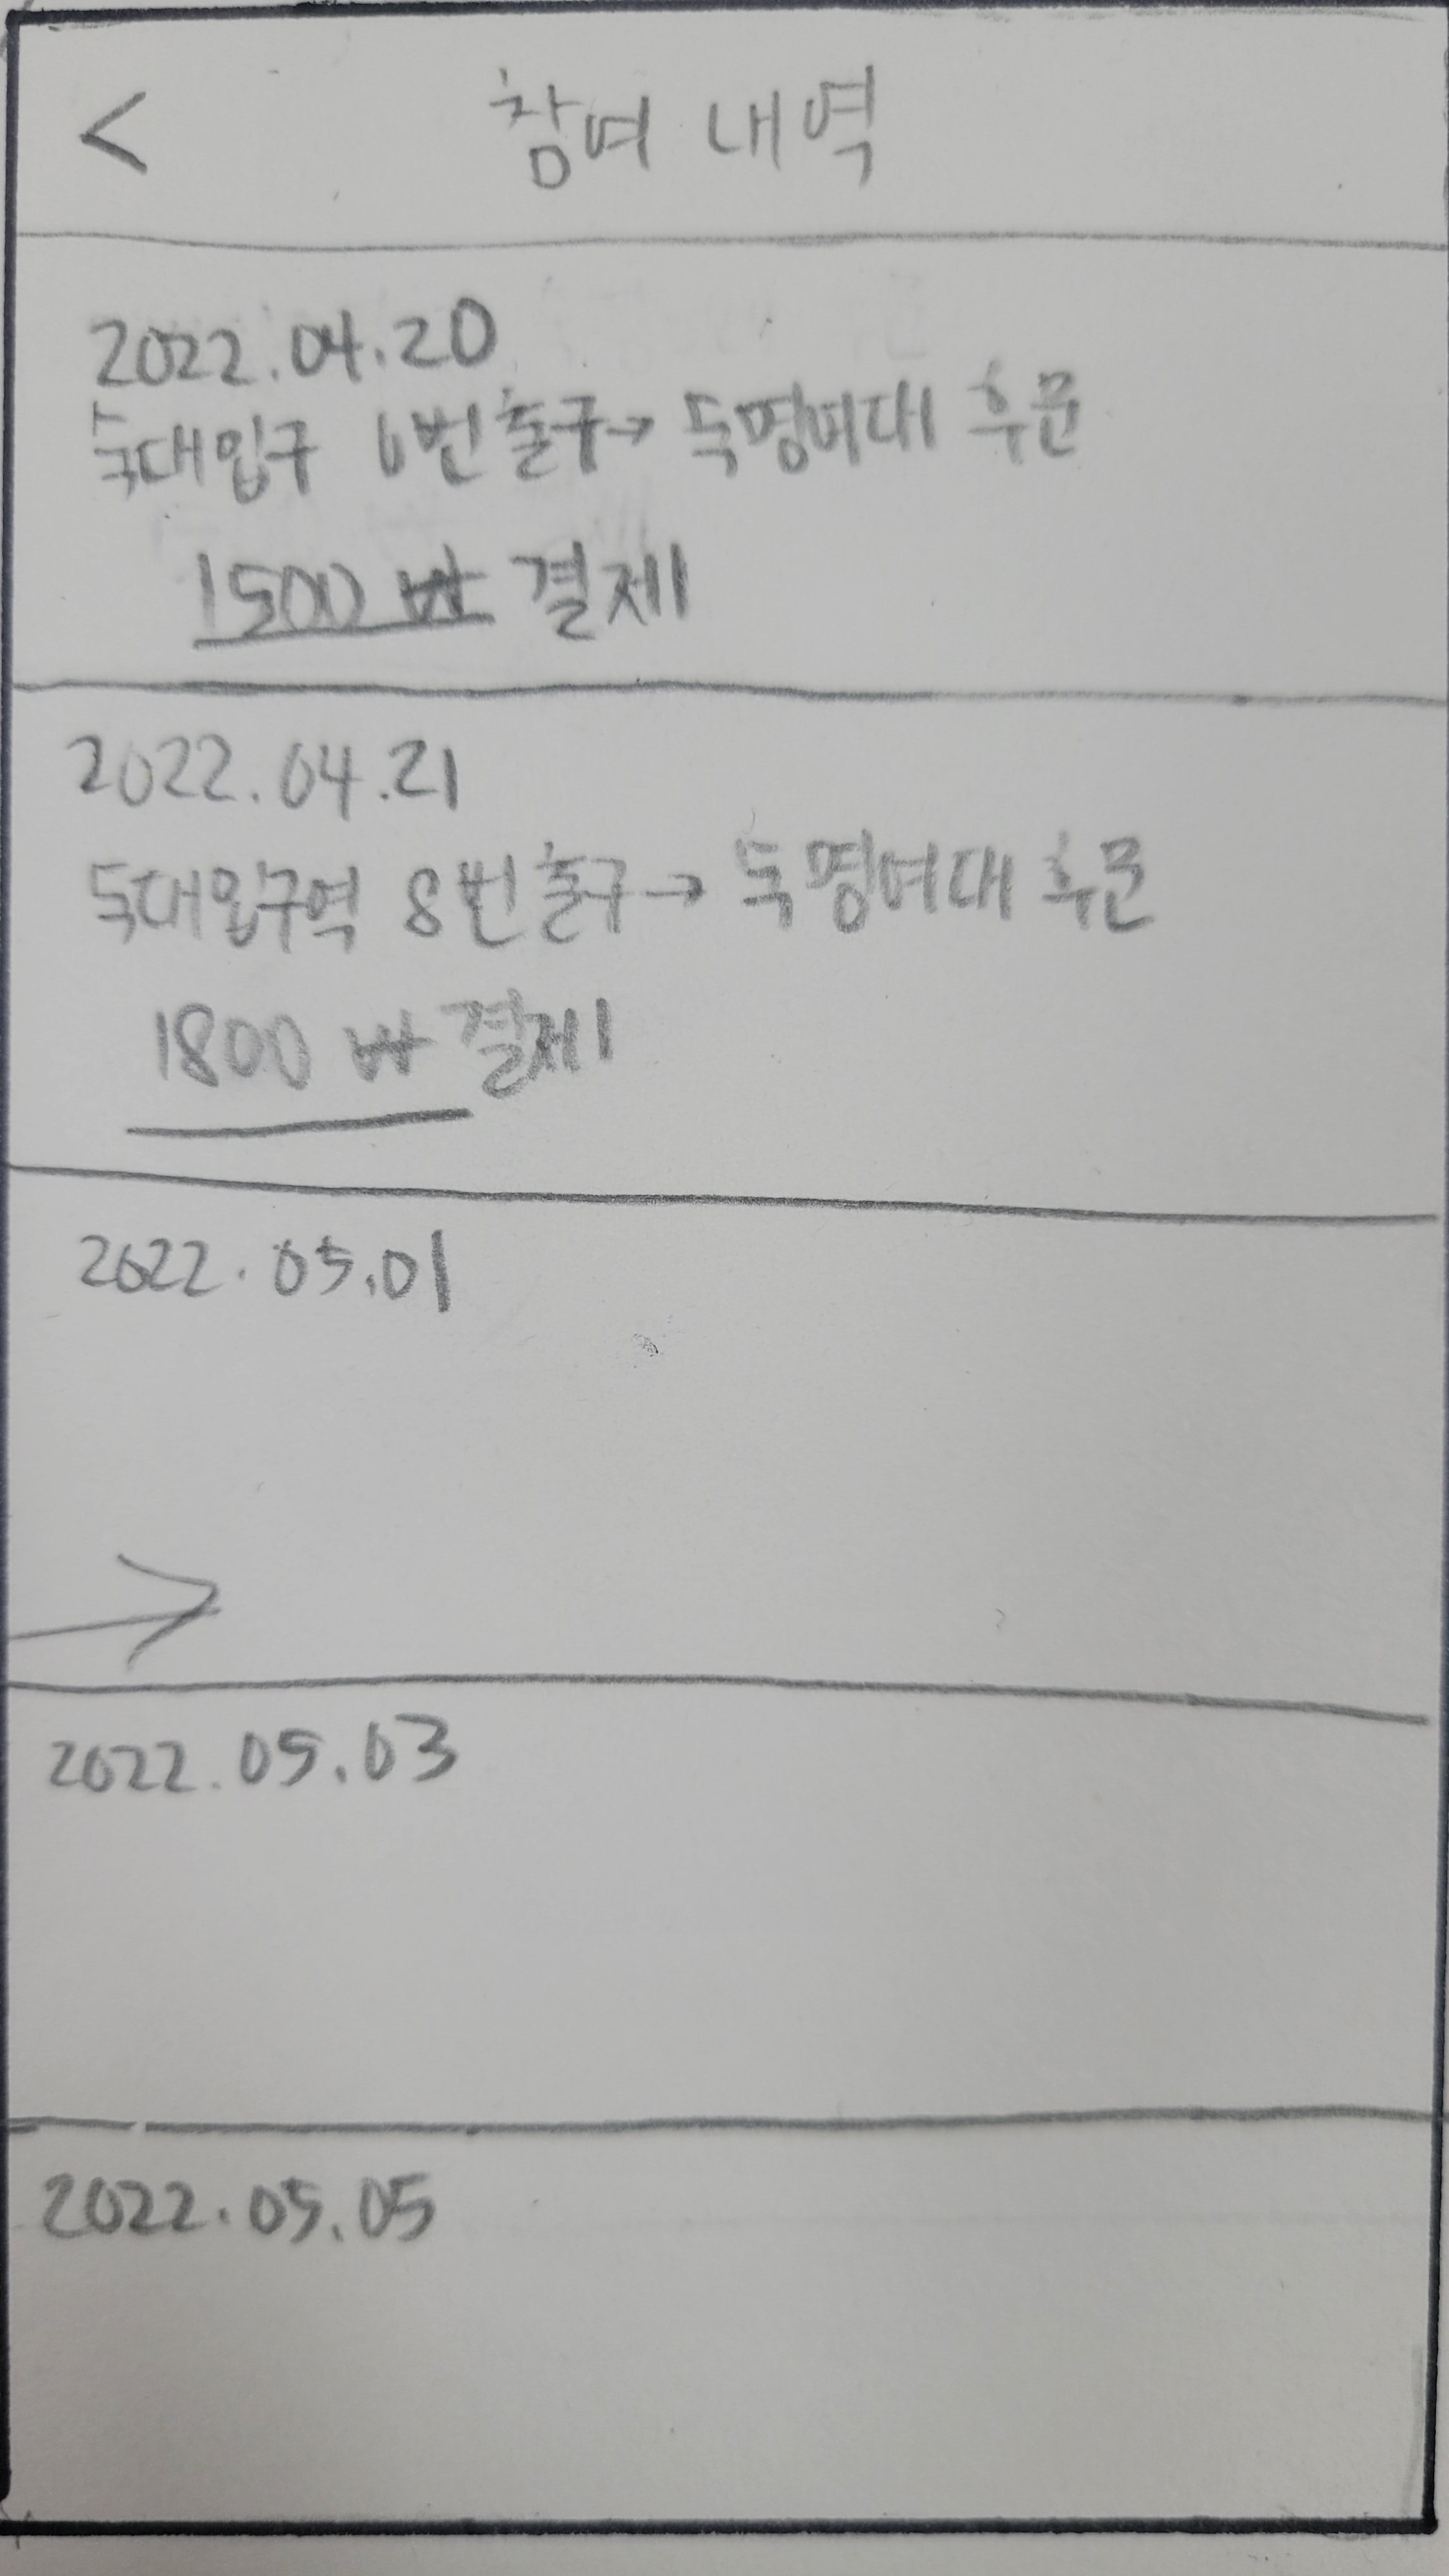 < 참여 내역
2022.04.20
숙대입구 6번출구→ 숙명여대 후문
1500 ₩ 결제
2022.04.21
숙대입구역 8번출구→ 숙명여대 후문
1800 ₩ 결제
2022.05.01
2022.05.03
2022.05.05